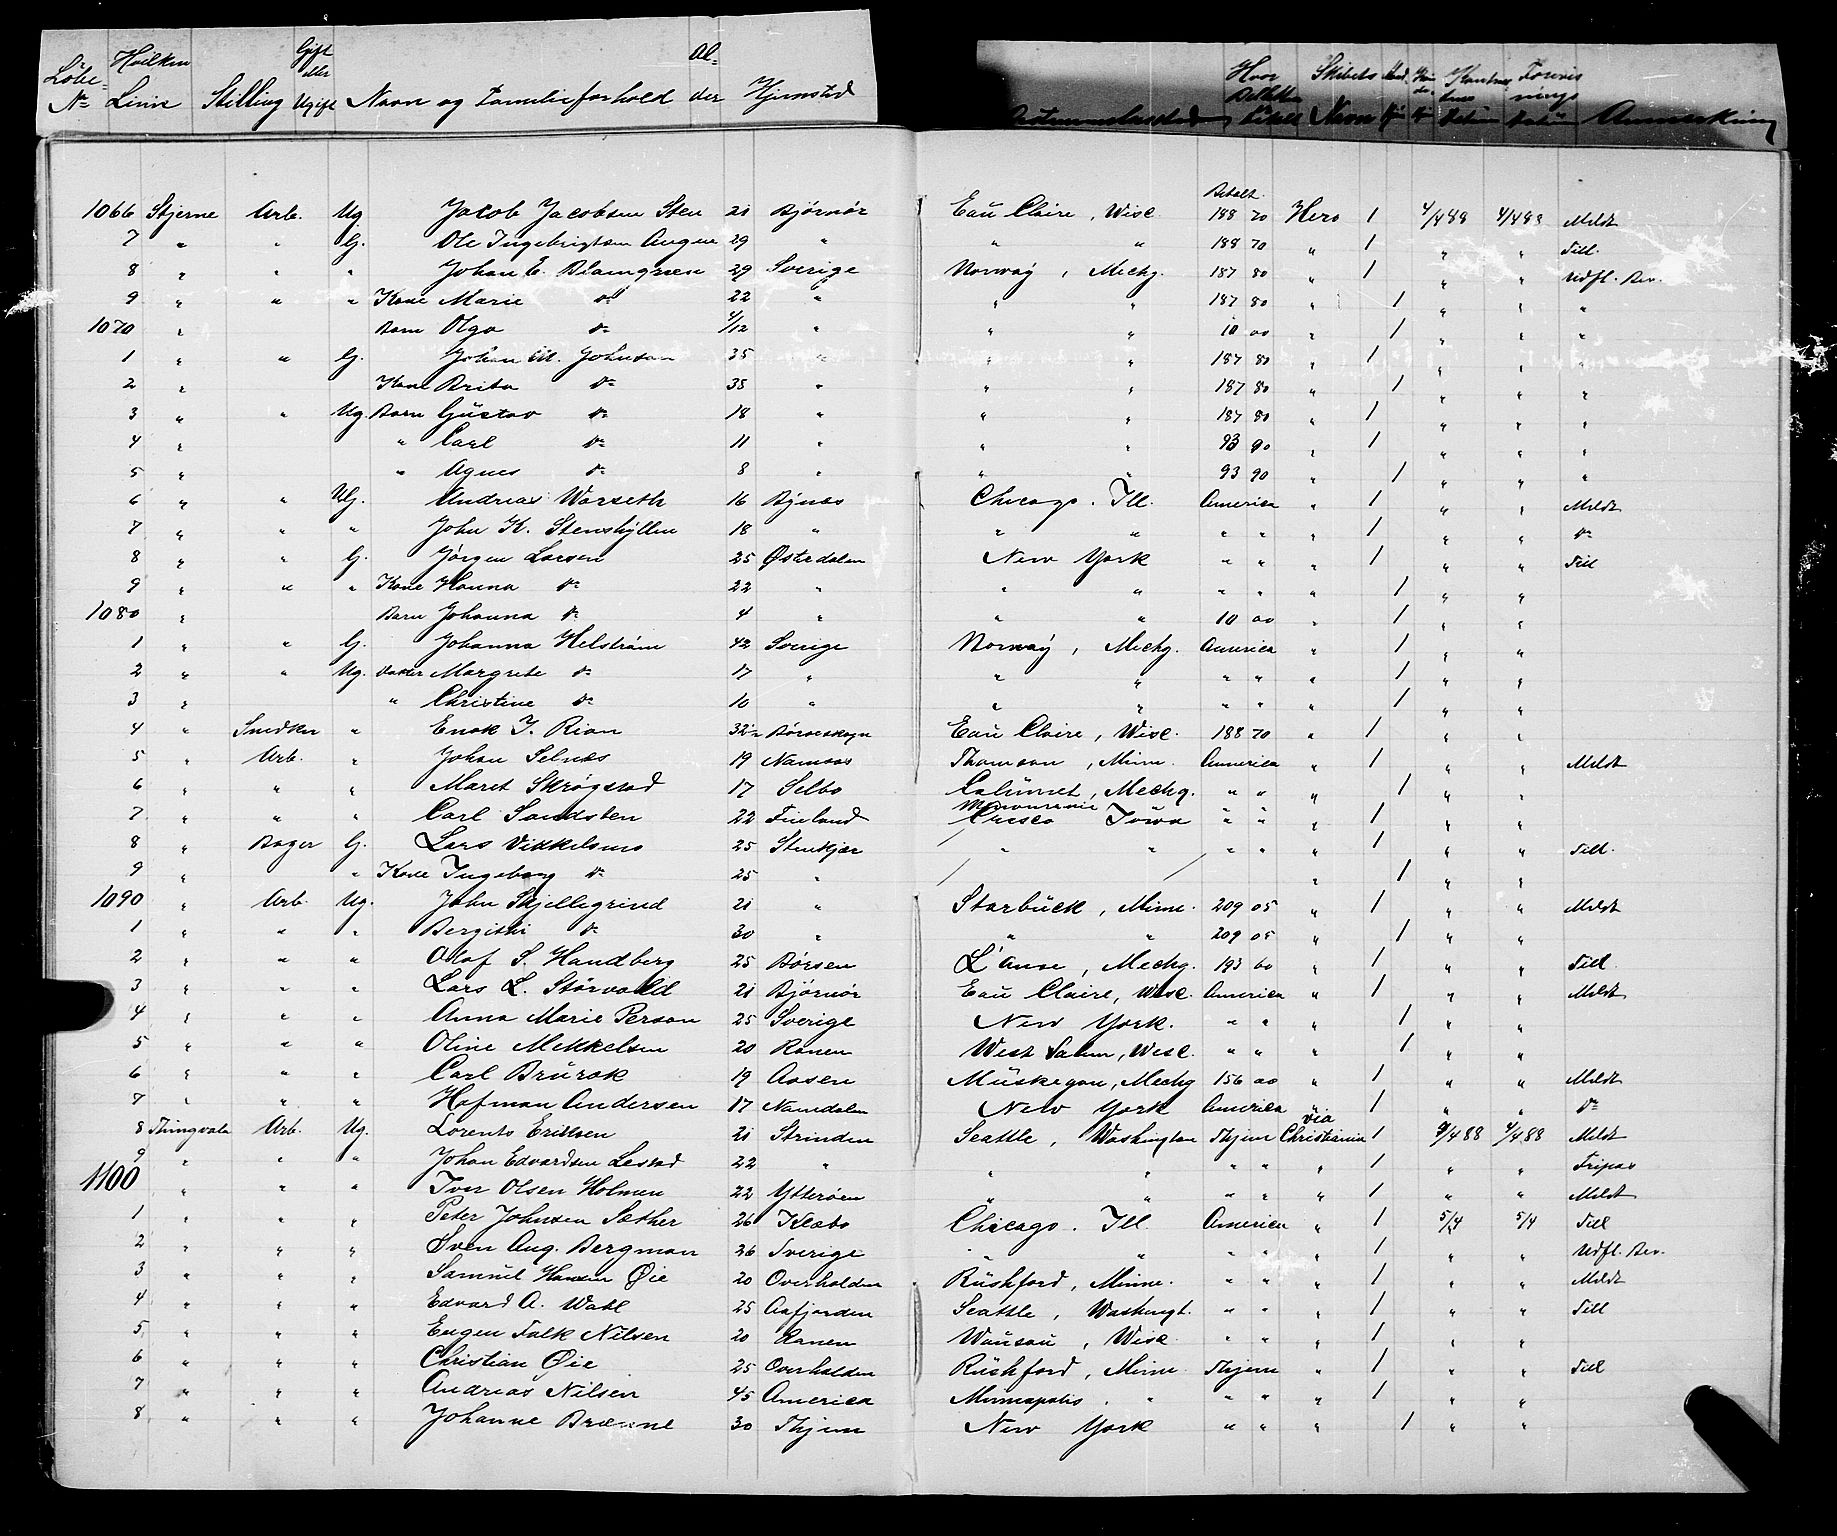 Löbe- Hvilken Gift Al- Hvor Skibets Forevis
eller
No Linie Stilling Ugift Navn og Familieforhold der Hjemsted Billetten nings
Navn Anmerkning
Betalt
1066 Stjerne Arb. Ug Jacob Jacobsen Sten 21 Bjørnør Eau Claire, Wisc. 188 70 Hero 1 4/488 4/488 Meldt
7 " " G. Ole Ingebrigtsen 29 " " " 188 70 " 1 " " Till.
8 " " " Johan E. 29 Sverige Norway, Mechg. 187 80 " 1 " " Udfl. Bev.
9 " " " Kone Marie do 22 " " " 187 80 " 1 " " "
1070 " Barn Olga do 4/12 " " " 10 00 " 1 " " "
1 " " G. Johan M. Johnson 35 " " " 187 80 " 1 " " "
2 " Kone Brita do 35 " " " 187 80 " 1 " " "
3 " " Ug. Barn Gustav do 18 " " " 187 80 " 1 " " "
4 " " Carl do 11 " " " 93 90 " 1 " " "
5 " " Agnes do 8 " " " 93 90 " 1 " " "
6 " " Ug. Andreas Warseth 16 Bynæs Chicago. Ill. America " 1 " " Meldt
7 " " " John K. Stenshyllen 18 " " " " " " 1 " " do
8 " " G. Jørgen Larsen 25 Østerdalen New York " " " 1 " " Till
9 " " " Kone Hanna do 22 " " " " " " 1 " "
1080 " Barn Johanna do 4 " " " 10 00 " 1 " "
1 " " G. Johanna Helström 42 Sverige Norway, Mechg. America " 1 " "
2 " " Ug. Datter Margrete do 17 " " " " " " 1 " "
3 " " Christine do 10 " " " " " " 1 " "
4 " Snedker " Enok J. Rian 32 Børseskogn Eau Claire, Wisc. 188 70 " 1 " "
5 " Arb. " Johan Selnæs 19 Namsos Thomson, Minn. America " 1 " " Meldt
6 " " " Maret Skrøgstad 17 Selbo Calumet, Mechg. " " " 1 " "
7 " " " Carl Sandsten 22 Finland Cresco Iowa " " " 1 " "
8 " Bager G. Lars Vikkelsmo 25 Stenkjær " " " " " 1 " " Till.
9 " " Kone Ingeborg do 25 " " 1 " "
1090 " Arb. Ug. John Skjellegrind 21 " Starbuck, Minn. 209 05 " 1 " " Meldt
1 " " " Bergitte do 30 " " " 209 05 " 1 " "
2 " " " Olaf S. Handberg 25 Børsen L'anse, Mechg. 193 60 " 1 " " Till
3 " " " Lars L. Størvold 21 Bjørnør Eau Claire, Wisc. America " 1 " " Meldt
4 " " " Anna Marie Person 25 Sverige New York. " " " 1 " "
5 " " " Oline Mekkelsen 20 Ranen West Salem, Wisc. " " " 1 " "
6 " " " Carl Brurok 19 Aasen Muskegon, Mechg 156 00 " 1 " " Meldt
7 " " " Hofman Andersen 17 Namdalen New York America " 1 " " do
8 Thingvala Arb. Ug. Lorents Eriksen 21 Strinden Seattle, Washington Thjem via Christiania 1 4/488 4/488 Meldt
9 " " " Johan Edvardsen Lestad 22 " " " " " " 1 " " Fripas
1100 " " " Iver Olsen Holmen 22 Ytterøen " " " " " 1 " " Meldt
1 " " " Peter Johnsen Sæther 26 Klæbo Chicago. Ill. America " 1 5/4 5/4 Till
2 " " " Sven Aug. Bergman 26 Sverige " " " " " 1 " " Udfl. Bev.
3 " " " Samuel Hansen Øie 20 Overhalden Rushford, Minne. " " " 1 " " Meldt
4 " " " Edvard A. Wahl 25 Aafjorden Seattle, Washingt. " " " 1 " " Till
5 " " " Eugen Falk Nilsen 20 Ranen Wausau, Wisc. " " " 1 " "
6 " " " Christian Øie 25 Overhalden Rushford, Minn. Thjem " 1 " " Till
7 " " " Andreas Nilsen 45 America Minneapolis. " " " " 1 " "
8 " " " Johanne Brænne 30 Thjem New York " " " 1 " "